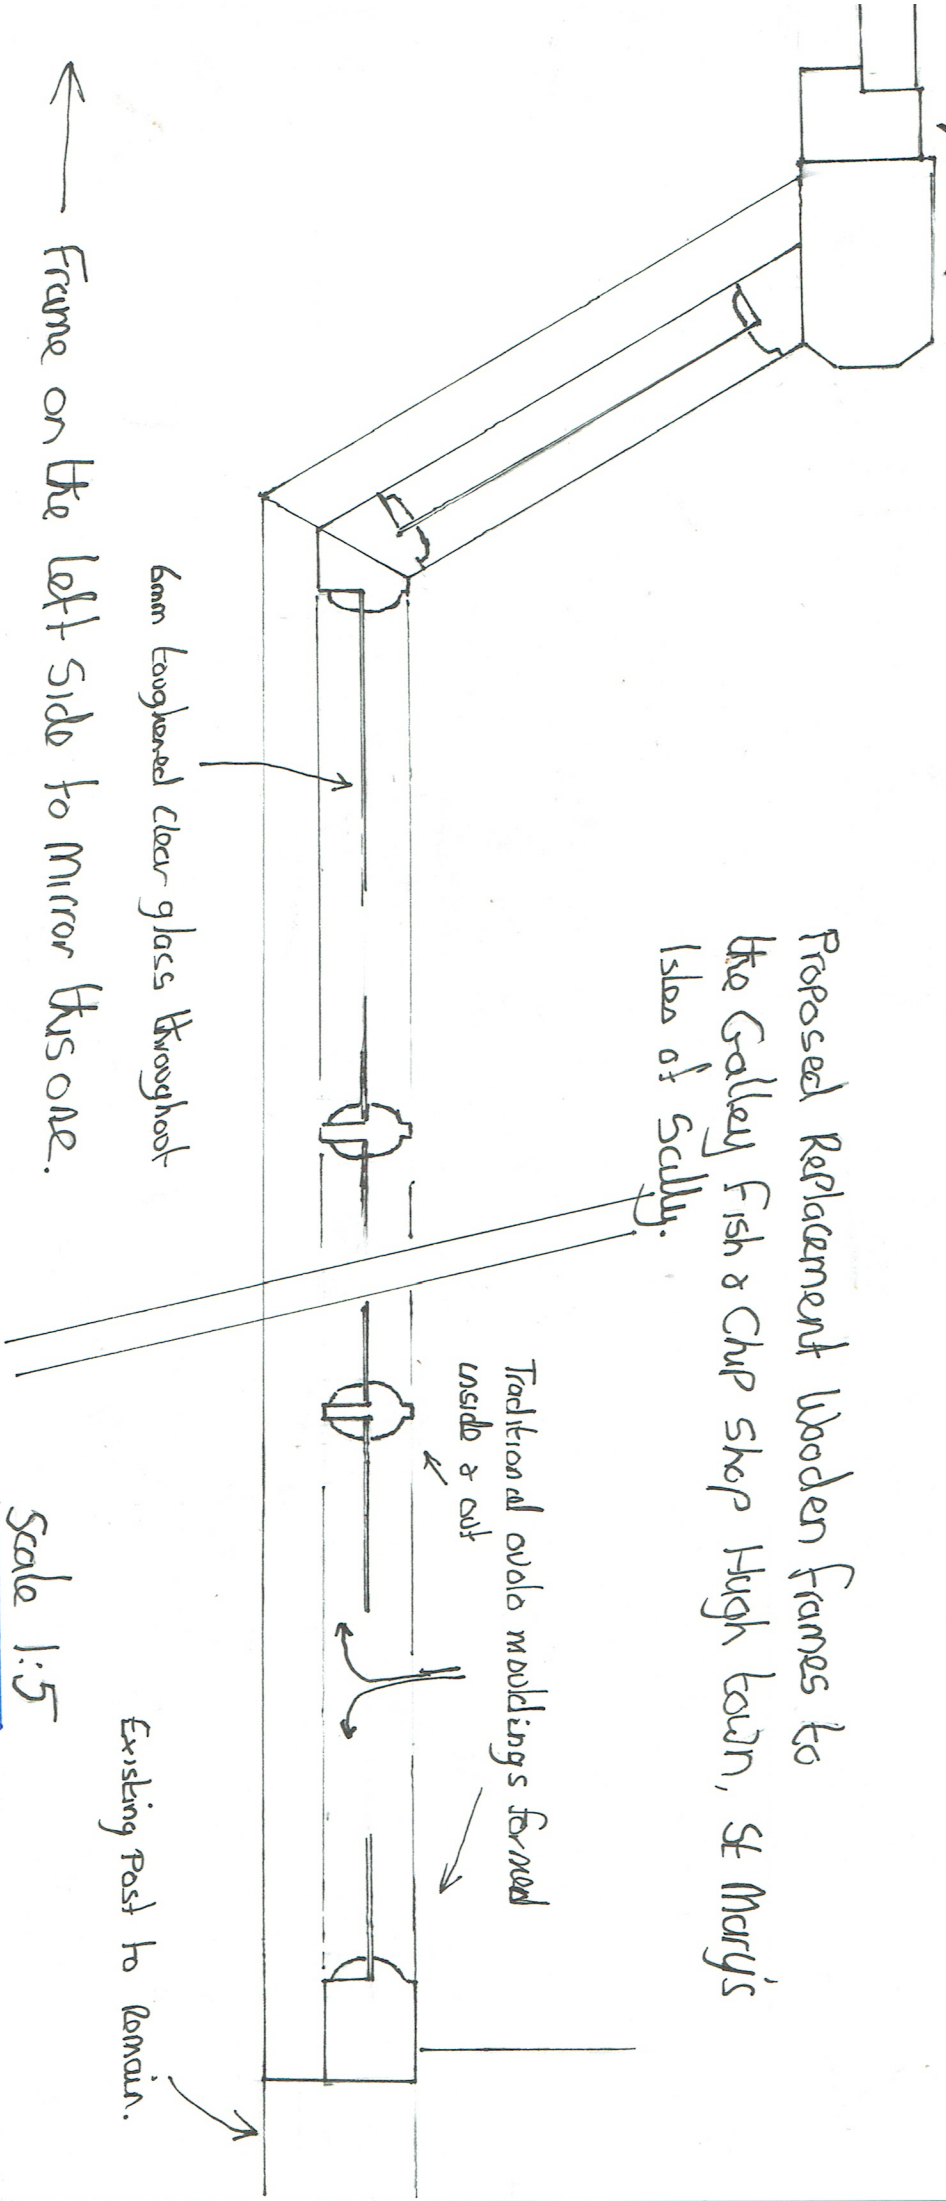 Proposed Replacement Wooden frames to
the Galley Fish & Chip shop Hugh town, St Mary's
Isles of Scilly.
Traditional ovolo mouldings formed
inside & out
6mm toughened clear glass throughout
Existing Post to Remain.
Frame on the left side to Mirror this one.
Scale 1:5